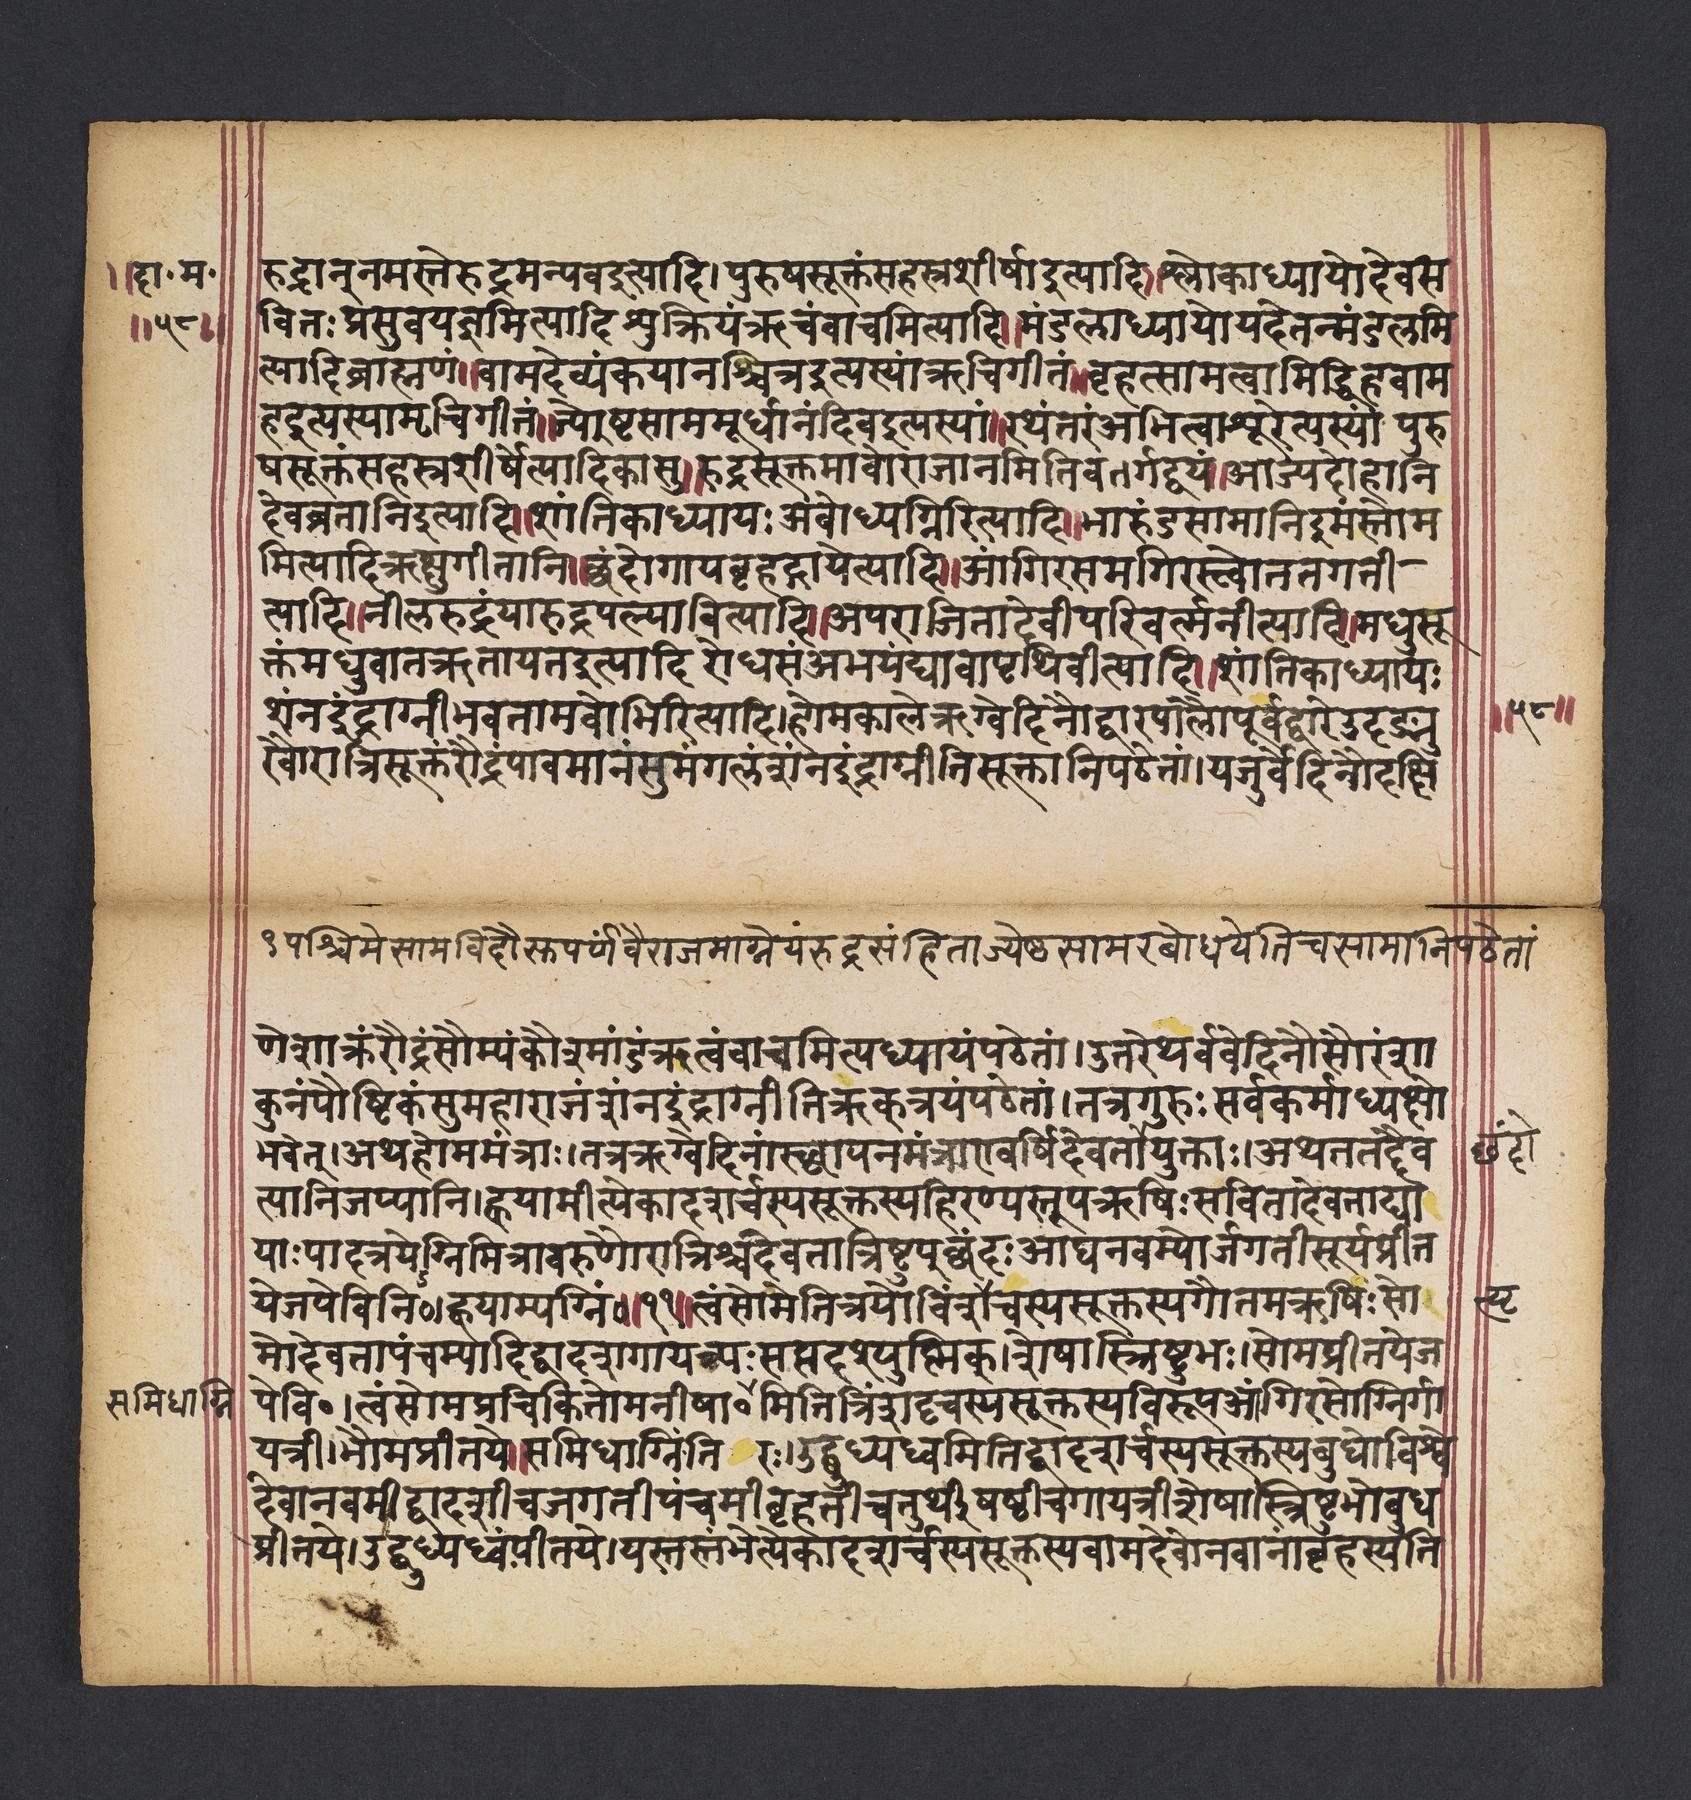 ॥दा॰म॰
॥५८॥
रुद्रानुनमस्तेरुद्रमन्यवइत्यादि। पुरुषसूक्तंसहस्रशीर्षाइत्यादि॥श्लोकाध्यायोदेवस
वितः प्रसुवयज्ञमित्यादि शुक्रियंऋचंवाचमित्यादि॥मंडलाध्यायोयदेतन्मंडलमि
त्यादिब्राह्मणं॥वामदेव्यंकयानश्चित्रइत्यस्यांऋचिगीतं॥बृहत्सामत्वामिद्धिहवाम
हइत्यस्यामृचिगीतं॥ज्येष्टसाममूर्धानंदिवइत्यस्यां॥रथंतरंअभित्वाशूरेत्यस्यां पुरु
षसूक्तंसहस्रशीर्षेत्यादिकासु॥रुद्रसूक्तमावोराजानमितिवतर्गद्वयं॥आज्यदोहानि
देवव्रतानिइत्यादि॥शांतिकाध्यायः अबोध्यग्निरित्यादि॥भारुंडसामानिइमंस्तोम
मित्यादिऋक्षुगीतानि॥छंदोगायबृहद्गायेत्यादि॥आंगिरसमगिरस्त्वोततगती
त्यादि॥नीलरुद्रंयारुद्रपत्न्यावित्यादि॥अपराजितादेवीपरिवर्त्मनीत्यादि॥मधुसू
क्तंमधुवातऋतायतइत्यादि रोधसंअभयंद्यावापृथिवीत्यादि॥शांतिकाध्यायः
शंनइंद्राग्नीभवतामवोभिरित्यादि।होमकालेऋग्वेदिनौद्वारपालौपूर्वद्वारेउदङ्मु
॥५८॥
खौरात्रिसूक्तंरौद्रंपावमानंसुमंगलंशंनइंद्राग्नीतिसूक्तानिपठेतां।यजुर्वेदिनौदक्षि
९पश्चिमेसामविदौसुपर्णवैराजमाग्नेयंरुद्रसंहिताज्येष्ठसामरबोधयेतिचसामानिपठेतां
णेशाक्रंरौद्रंसौम्यंकौश्मांडंऋत्वंवाचमित्यध्यायंपठेतां।उत्तरेथर्ववेदिनौसौरंशा
कुनंपौष्टिकंसुमहाराजंशंनइंद्राग्नीतिऋकत्रयंपठेतां।तत्रगुरुःसर्वकर्माध्यक्षो
भवेत्।अथहोममंत्राः।तत्रऋग्वेदिनांस्छापनमंत्राणवर्षिदेवतायुक्ताः।अथतत्तद्दैव
छंदो
त्यानिजप्यानि।ह्वयामीत्येकादशर्चस्यसूक्तस्यहिरण्यस्तूपऋषिःसवितादेवताद्या
याःपादत्रयेग्निमित्रावरुणौरात्रिश्चदेवतात्रिष्टुपछंदःआद्यनवम्योर्जगतीसूर्यप्रीत
येजपेविनि०।ह्वयाम्यग्निं०॥११॥त्वंसोमेतित्रयोविंशर्चस्यसूक्तस्यगौतमऋषिःसो
मोदेवतापंचम्यादिद्वादशगायत्र्यःसप्तदश्युष्मिक्।शेषास्त्रिष्टुभः।सोमप्रीतयेज
पेवि॰।त्वंसोमप्रचिकितोमनीषा॰मितित्रिंशदृचस्यसूक्तस्यविरूपआंगिरसोग्निर्गा
समिधाग्नि
यत्री।भौमप्रीतये॥समिधाग्निंति रः।उद्बुध्यध्वमितिद्वादशर्चस्यसूक्तस्यबुधोविश्वे
देवानवमीद्वादशीचजगतीपंचमीबृहतीचतुर्थीषष्ठीचगायत्रीशेषास्त्रिष्टुभोबुध
प्रीतये।उद्बुध्यध्वंपीतये।यस्तस्तंभेत्येकादशर्चस्यसूक्तस्यवामदेवोनवानांबृहस्पति